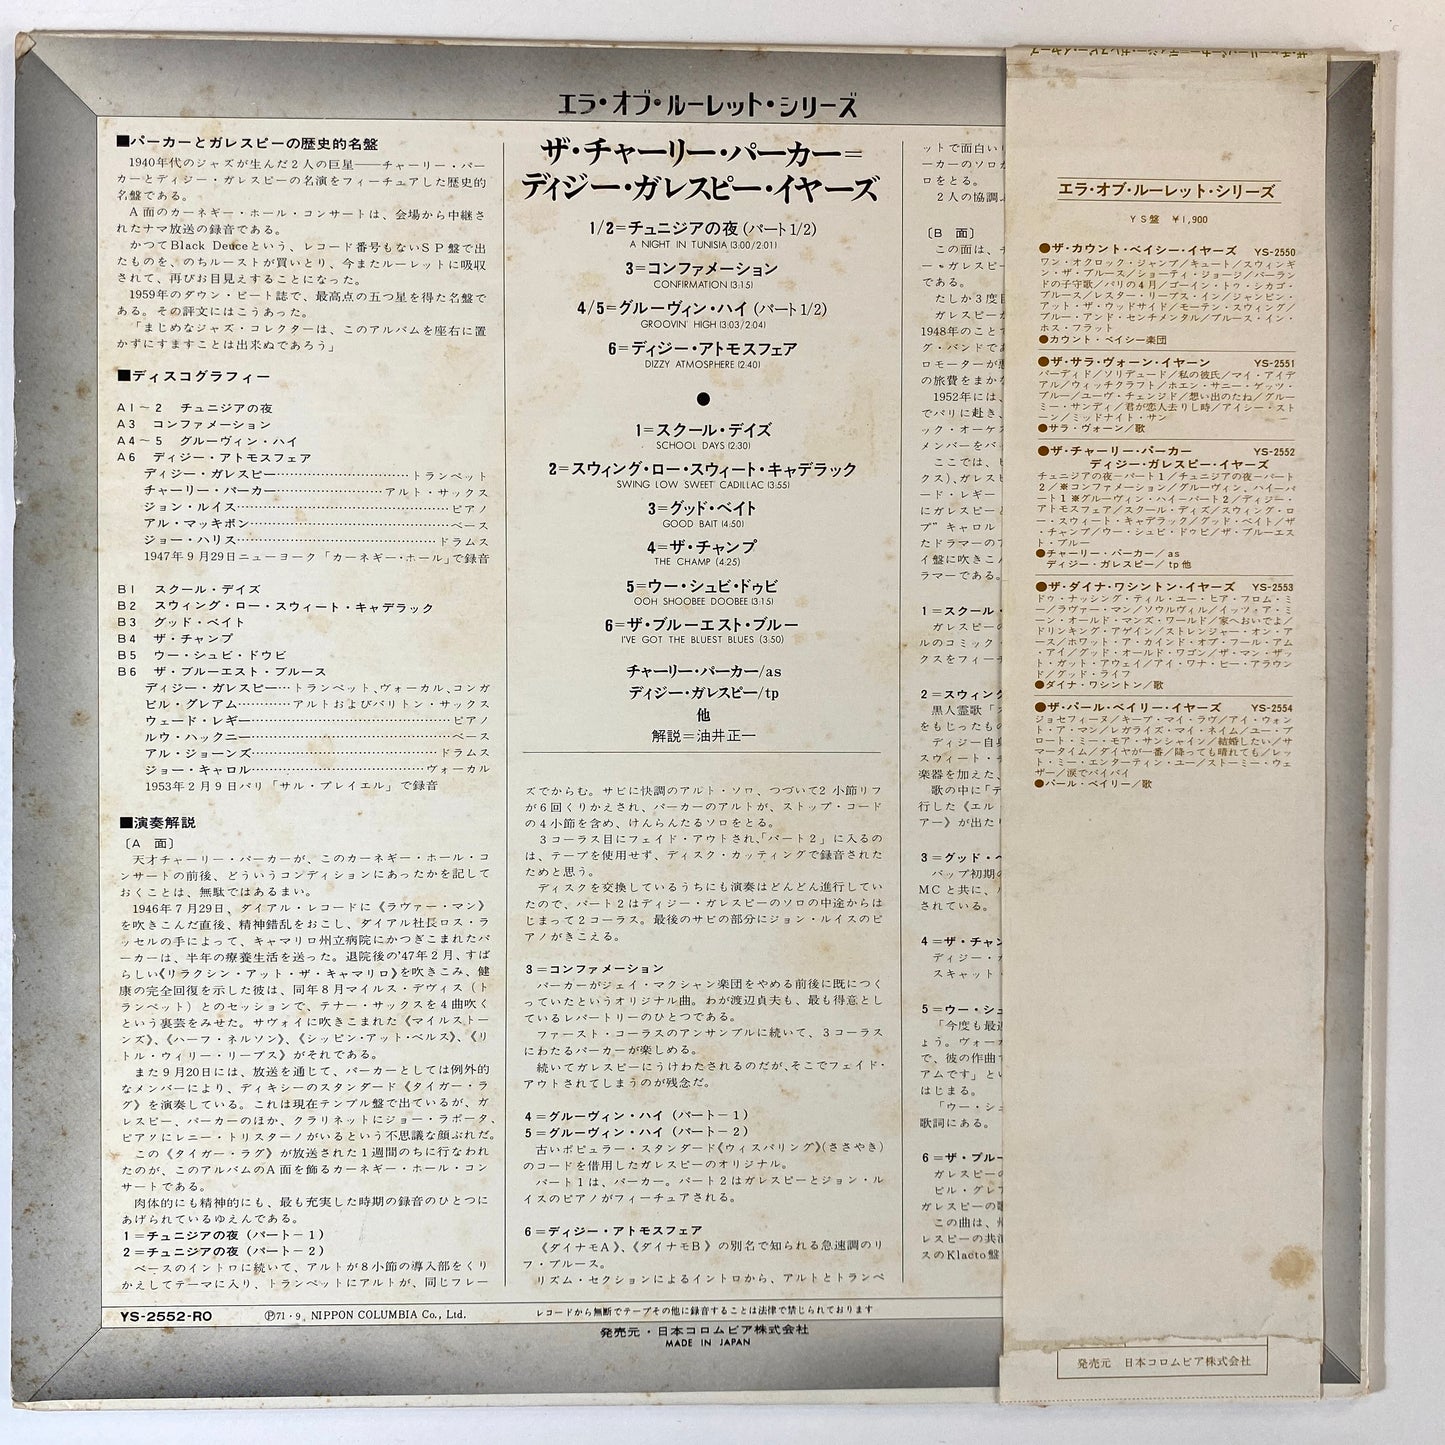 エラ・オブ・ルーレット・シリーズ
■パーカーとガレスピーの歴史的名盤
1940年代のジャズが生んだ2人の巨星——チャーリー・パー
カーとディジー・ガレスピーの名演をフィーチュアした歴史的
名盤である。
A面のカーネギー・ホール・コンサートは、会場から中継さ
れたナマ放送の録音である。
かつてBlack Deuceという、レコード番号もないSP盤で出
たものを、のちルーストが買いとり、今またルーレットに吸収
されて、再びお目見えすることになった。
1959年のダウン・ビート誌で、最高点の五つ星を得た名盤で
ある。その評文にはこうあった。
「まじめなジャズ・コレクターは、このアルバムを座右に置
かずにすますことは出来ぬであろう」
■ディスコグラフィー
A1～2 チュニジアの夜
A3 コンファメーション
A4～5 グルーヴィン・ハイ
A6 ディジー・アトモスフェア
ディジー・ガレスピー……………………トランペット
チャーリー・パーカー………………アルト・サックス
ジョン・ルイス………………………………ピアノ
アル・マッキボン……………………………ベース
ジョー・ハリス……………………………ドラムス
1947年9月29日ニューヨーク「カーネギー・ホール」で録音
B1 スクール・デイズ
B2 スウィング・ロー・スウィート・キャデラック
B3 グッド・ベイト
B4 ザ・チャンプ
B5 ウー・シュビ・ドウビ
B6 ザ・ブルーエスト・ブルース
ディジー・ガレスピー…トランペット、ヴォーカル、コンガ
ビル・グレアム………アルトおよびバリトン・サックス
ウェード・レギー……………………………ピアノ
ルウ・ハックニー……………………………ベース
アル・ジョーンズ…………………………ドラムス
ジョー・キャロル………………………ヴォーカル
1953年2月9日パリ「サル・プレイエル」で録音
■演奏解説
〔A 面〕
天才チャーリー・パーカーが、このカーネギー・ホール・コ
ンサートの前後、どういうコンディションにあったかを記して
おくことは、無駄ではあるまい。
1946年7月29日、ダイアル・レコードに《ラヴァー・マン》
を吹きこんだ直後、精神錯乱をおこし、ダイアル社長ロス・ラ
ッセルの手によって、キャマリロ州立病院にかつぎこまれたパ
ーカーは、半年の療養生活を送った。退院後の'47年2月、すば
らしい《リラクシン・アット・ザ・キャマリロ》を吹きこみ、健
康の完全回復を示した彼は、同年8月マイルス・デヴィス（ト
ランペット）とのセッションで、テナー・サックスを4曲吹く
という裏芸をみせた。サヴォイに吹きこまれた《マイルストー
ンズ》、《ハーフ・ネルソン》、《シッピン・アット・ベルス》、《リ
トル・ウィリー・リープス》がそれである。
また9月20日には、放送を通じて、パーカーとしては例外的
なメンバーにより、ディキシーのスタンダード《タイガー・ラ
グ》を演奏している。これは現在テンプル盤で出ているが、ガ
レスピー、パーカーのほか、クラリネットにジョー・ラポータ、
ピアノにレニー・トリスターノがいるという不思議な顔ぶれだ。
この《タイガー・ラグ》が放送された1週間のちに行なわれ
たのが、このアルバムのA面を飾るカーネギー・ホール・コン
サートである。
肉体的にも精神的にも、最も充実した時期の録音のひとつに
あげられているゆえんである。
1＝チュニジアの夜（パート－1）
2＝チュニジアの夜（パート－2）
ベースのイントロに続いて、アルトが8小節の導入部をくり
かえしてテーマに入り、トランペットにアルトが、同じフレー
ザ・チャーリー・パーカー＝
ディジー・ガレスピー・イヤーズ
1/2＝チュニジアの夜（パート1/2）
A NIGHT IN TUNISIA (3:00/2:01)
3＝コンファメーション
CONFIRMATION (3:15)
4/5＝グルーヴィン・ハイ（パート1/2）
GROOVIN' HIGH (3:03/2:04)
6＝ディジー・アトモスフェア
DIZZY ATMOSPHERE (2:40)
●
1＝スクール・デイズ
SCHOOL DAYS (2:30)
2＝スウィング・ロー・スウィート・キャデラック
SWING LOW SWEET CADILLAC (3:55)
3＝グッド・ベイト
GOOD BAIT (4:50)
4＝ザ・チャンプ
THE CHAMP (4:25)
5＝ウー・シュビ・ドゥビ
OOH SHOOBEE DOOBEE (3:15)
6＝ザ・ブルーエスト・ブルー
I'VE GOT THE BLUEST BLUES (3:50)
チャーリー・パーカー/as
ディジー・ガレスピー/tp
他
解説＝油井正一
ズでからむ。サビに快調のアルト・ソロ、つづいて2小節リフ
が6回くりかえされ、パーカーのアルトが、ストップ・コード
の4小節を含め、けんらんたるソロをとる。
3コーラス目にフェイド・アウトされ、「パート2」に入るの
は、テープを使用せず、ディスク・カッティングで録音された
ためと思う。
ディスクを交換しているうちにも演奏はどんどん進行してい
たので、パート2はディジー・ガレスピーのソロの中途からは
じまって2コーラス。最後のサビの部分にジョン・ルイスのピ
アノがきこえる。
3＝コンファメーション
パーカーがジェイ・マクシャン楽団をやめる前後に既につく
っていたというオリジナル曲。わが渡辺貞夫も、最も得意とし
ているレパートリーのひとつである。
ファースト・コーラスのアンサンブルに続いて、3コーラス
にわたるパーカーが楽しめる。
続いてガレスピーにうけわたされるのだが、そこでフェイド・
アウトされてしまうのが残念だ。
4＝グルーヴィン・ハイ（パート－1）
5＝グルーヴィン・ハイ（パート－2）
古いポピュラー・スタンダード《ウィスパリング》（ささやき）
のコードを借用したガレスピーのオリジナル。
パート1は、パーカー。パート2はガレスピーとジョン・ル
イスのピアノがフィーチュアされる。
6＝ディジー・アトモスフェア
《ダイナモA》、《ダイナモB》の別名で知られる急速調のリ
フ・ブルース。
リズム・セクションによるイントロから、アルトとトランペ
ットで面白い
ーカーのソロが
ロをとる。
2人の協調
〔B 面〕
この面は、
ー・ガレスピー
である。
たしか3度目
ガレスピーが
1948年のことで
グ・バンドであ
ロモーターが悪
の旅費をまかな
1952年には、
でパリに赴き、
ック・オーケス
メンバーをバ
ここでは、ビ
クス)、ガレスピ
ード・レギー
にガレスピーと
プ"キャロル
たドラマーのア
イ盤に吹きこん
ラマーである。
1＝スクール・
ガレスピーの
ルのコミック・
クスをフィーチ
2＝スウィング
黒人霊歌「ス
をもじったもの
ディジー自身
スウィート・
楽器を加えた、
歌の中に「デ
行した《エル・
アー》が出たり
3＝グッド・ベ
バップ初期の
MCと共に、
されている。
4＝ザ・チャン
ディジー・ガ
スキャット・
5＝ウー・シュ
「今度も最近
ょう。ヴォー
で、彼の作曲で
アムです」とい
はじまる。
「ウー・シュ
歌詞にある。
6＝ザ・ブルー
ガレスピーの
ビル・グレア
ガレスピーの歌
この曲は、
レスピーの共演
スのKlacto盤
YS-2552-RO
Ⓟ71・9. NIPPON COLUMBIA Co., Ltd.
レコードから無断でテープその他に録音することは法律で禁じられております
発売元・日本コロムビア株式会社
MADE IN JAPAN
エラ・オブ・ルーレット・シリーズ
YS盤 ¥1,900
●ザ・カウント・ベイシー・イヤーズ YS-2550
ワン・オクロック・ジャンプ／キュート／スウィンギ
ン・ザ・ブルース／ショーティ・ジョージ／バーラン
ドの子守歌／パリの4月／ゴーイン・トゥ・シカゴ・
ブルース／レスター・リープス・イン／ジャンピン・
アット・ザ・ウッドサイド／モーテン・スウィング／
ブルー・アンド・センチメンタル／ブルース・イン・
ホス・フラット
●カウント・ベイシー楽団
●ザ・サラ・ヴォーン・イヤーン YS-2551
パーディド／ソリデュード／私の彼氏／マイ・アイデ
アル／ウィッチクラフト／ホエン・サニー・ゲッツ・
ブルー／ユーヴ・チェンジド／想い出のたね／グルー
ミー・サンディ／君が恋人去りし時／アイシー・スト
ーン／ミッドナイト・サン
●サラ・ヴォーン／歌
●ザ・チャーリー・パーカー YS-2552
ディジー・ガレスピー・イヤーズ
チュニジアの夜－パート1／チュニジアの夜－パート
2／※コンファメーション／グルーヴィン、ハイーパ
ート1※グルーヴィン・ハイーパート2／ディジー・
アトモスフェア／スクール・ディズ／スウィング・ロ
ー・スウィート・キャデラック／グッド・ベイト／ザ
・チャンプ／ウー・シュビ・ドゥビ／ザ・ブルーエス
ト・ブルー
●チャーリー・パーカー／as
ディジー・ガレスピー／tp他
●ザ・ダイナ・ワシントン・イヤーズ YS-2553
ドゥ・ナッシング・ティル・ユー・ヒア・フロム・ミ
ー／ラヴァー・マン／ソウルヴィル／イッツ・ア・ミ
ーン・オールド・マンズ・ワールド／家へおいでよ／
ドリンキング・アゲイン／ストレンジャー・オン・ア
ース／ホワット・ア・カインド・オブ・フール・アム
・アイ／グッド・オールド・ワゴン／ザ・マン・ザッ
ト・ガット・アウェイ／アイ・ワナ・ビー・アラウン
ド／グッド・ライフ
●ダイナ・ワシントン／歌
●ザ・パール・ベイリー・イヤーズ YS-2554
ジョセフィーヌ／キープ・マイ・ラヴ／アイ・ウォン
ト・ア・マン／レガライズ・マイ・ネイム／ユー・ブ
ロート・ミー・モア・サンシャイン／結婚したい／サ
マータイム／ダイヤが一番／降っても晴れても／レッ
ト・ミー・エンターティン・ユー／ストーミー・ウェ
ザー／涙でバイバイ
●パール・ベイリー／歌
発売元 日本コロムビア株式会社